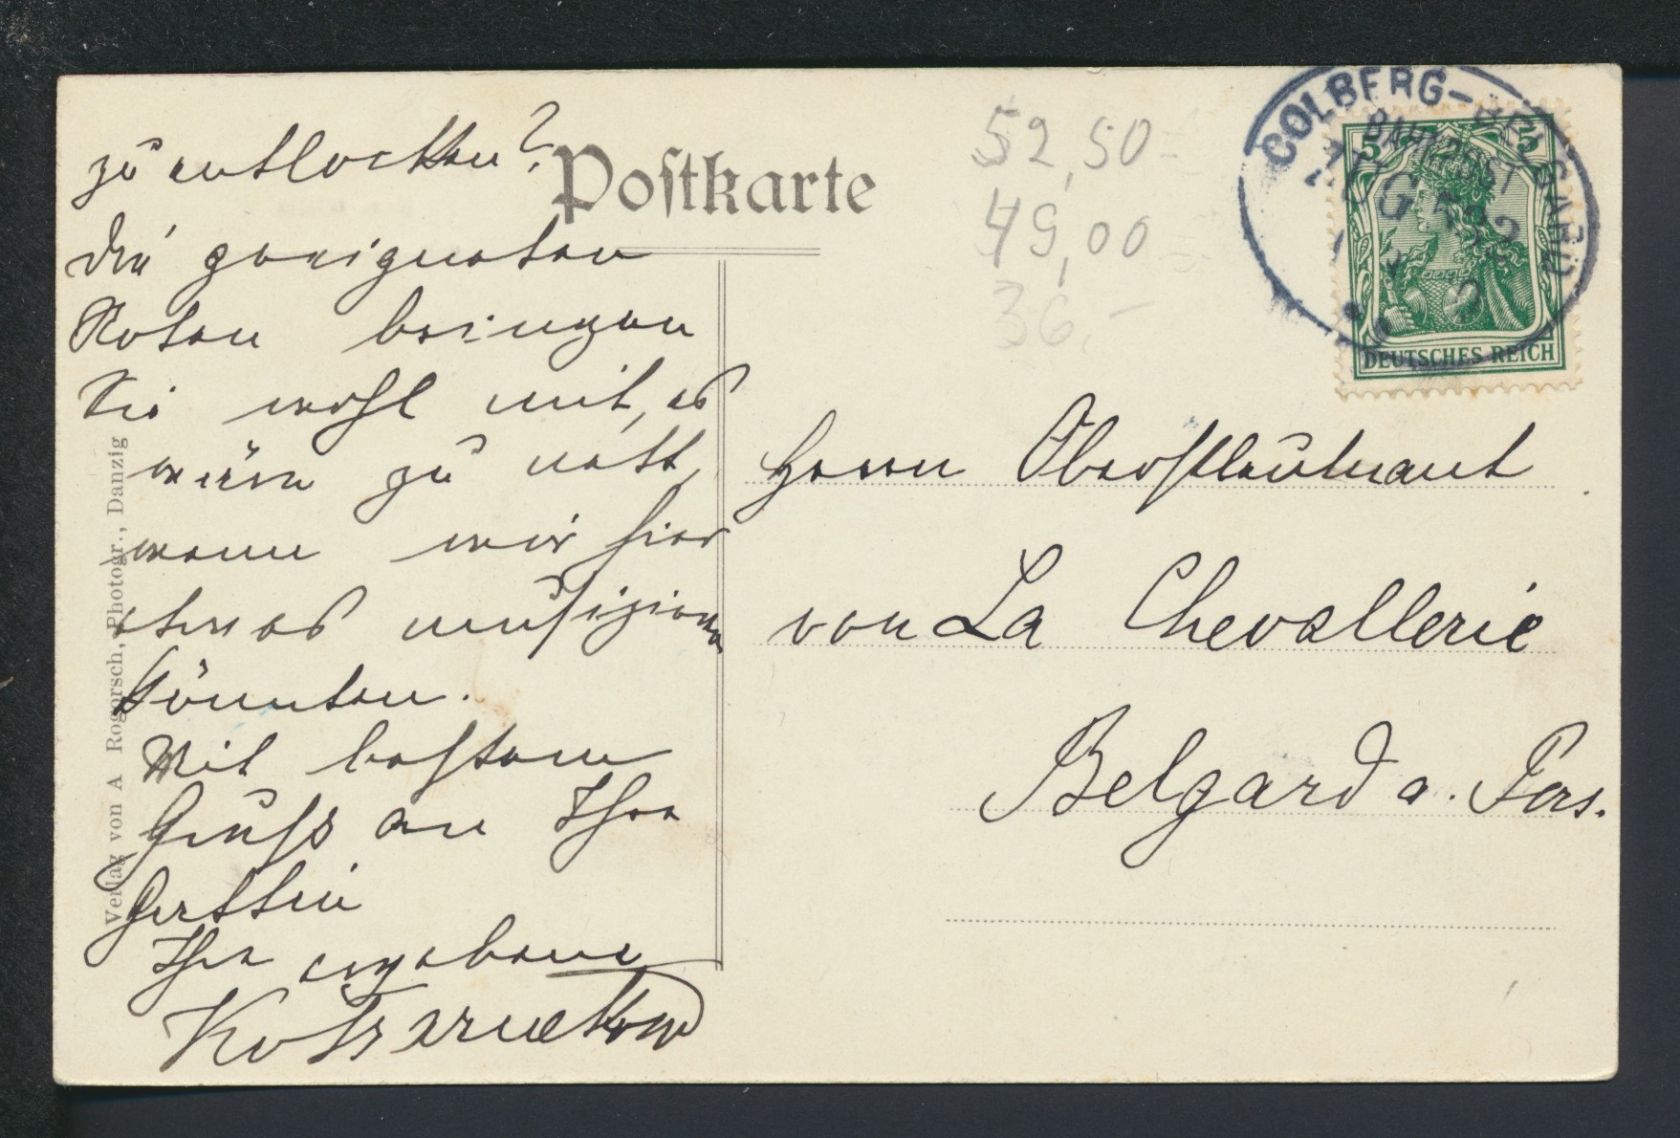 zu entlocken?
die geeigneten
Noten bringen
Sie wohl mit, es
wäre zu nett,
wenn wir hier
etwas musizieren
könnten.
Mit bestem
Gruß an Ihre
Gattin
Ihr ergebener
Postkarte
52,50
49,00
36,-
COLBERG-BELGARD
BAHNPOST
ZUG 522
5 5
DEUTSCHES REICH
Herrn Oberstleutnant
von La Chevallerie
Belgard a. Pers.
Verlag von A Rogorsch, Photogr., Danzig